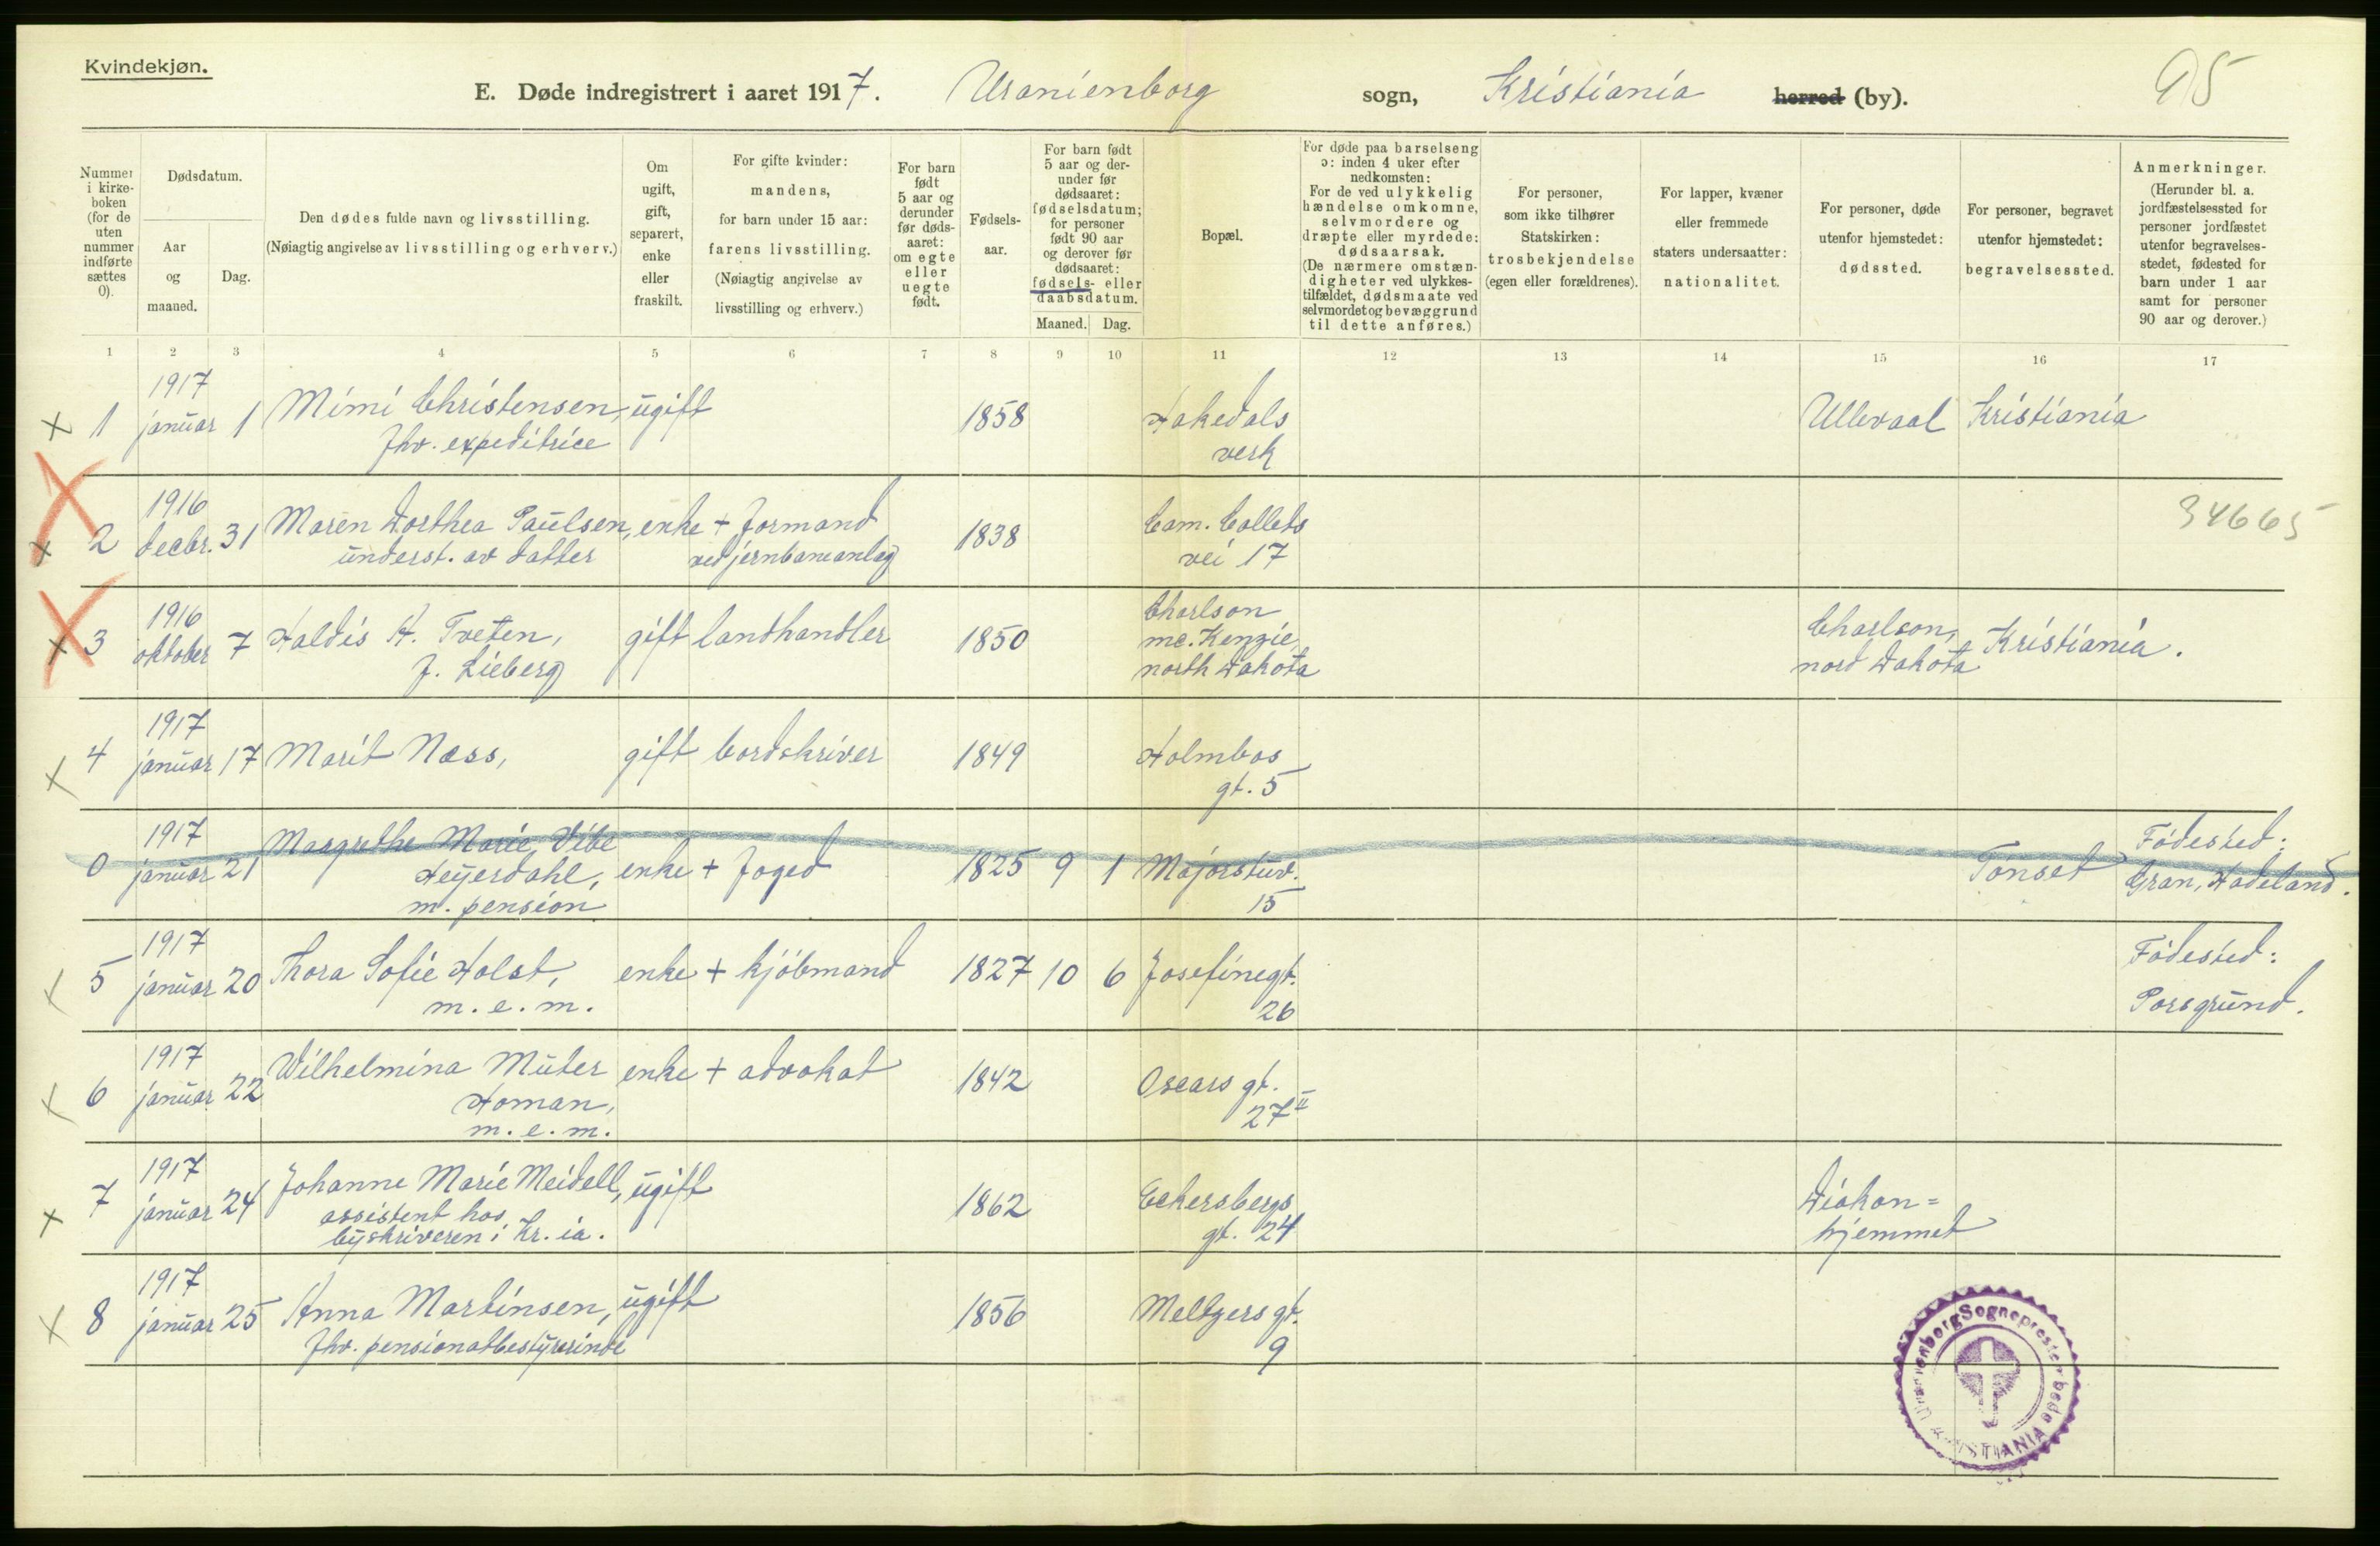 Kvindekjøn.
95
E. Døde indregistrert i aaret 1917. Uranienborg sogn, Kristiania herred (by).
Nummer i kirkeboken (for de uten nummer indførte sættes 0).
Dødsdatum.
Aar og maaned.
Dag.
Den dødes fulde navn og livsstilling.
(Nøiagtig angivelse av livsstilling og erhverv.)
Om ugift, gift, separert, enke eller fraskilt.
For gifte kvinder: mandens, for barn under 15 aar: farens livsstilling.
(Nøiagtig angivelse av livsstilling og erhverv.)
For barn født 5 aar og derunder før dødsaaret: om egte eller uegte født.
Fødselsaar.
For barn født 5 aar og derunder før dødsaaret: fødselsdatum; for personer født 90 aar og derover før dødsaaret: fødsels- eller daabsdatum.
Maaned. Dag.
Bopæl.
For døde paa barselseng ɔ: inden 4 uker efter nedkomsten: For de ved ulykkelig hændelse omkomne, selvmordere og dræpte eller myrdede: dødsaarsak.
(De nærmere omstændigheter ved ulykkestilfældet, dødsmaate ved selvmordet og bevæggrund til dette anføres.)
For personer, som ikke tilhører Statskirken: trosbekjendelse (egen eller forældrenes).
For lapper, kvæner eller fremmede staters undersaatter: nationalitet.
For personer, døde utenfor hjemstedet: dødssted.
For personer, begravet utenfor hjemstedet: begravelsessted.
Anmerkninger.
(Herunder bl. a. jordfæstelsessted for personer jordfæstet utenfor begravelsesstedet, fødested for barn under 1 aar samt for personer 90 aar og derover.)
1 2 3 4 5 6 7 8 9 10 11 12 13 14 15 16 17
1917
x 1 januar 1 Mimi Christensen, ugift 1858 Hakedals Ullevaal Kristiania
fhv. expeditrice verk
1916
x 2 decbr. 31 Maren Dorthea Paulsen, enke + formand 1838 Cam. Colletts 34665
underst. av datter ved jernbaneanlæg vei 17
1916 Charlson
x 3 oktober 7 Haldis H. Tveten, gift landhandler 1850 mc. Kenzie, Charlson, Kristiania.
f. Lieberg north Dakota nord Dakota
1917
x 4 januar 17 Marit Næss, gift bordskriver 1849 Holmbos
gt. 5
1917 Margrethe Marie Vibe Fødested:
0 januar 21 Heyerdahl, enke + foged 1825 9 1 Majorstuv. Tønset Gran, Hadeland.
m. pension 15
1917 Fødested:
x 5 januar 20 Thora Sofie Holst, enke + kjøbmand 1827 10 6 Josefinegt. Porsgrund.
m. e. m. 26
1917 Wilhelmina Müter enke + advokat
x 6 januar 22 Homan, 1842 Oscars gt.
m. e. m. 27 II
1917 Johanne Marie Meidell, ugift
x 7 januar 24 assistent hos 1862 Eckersbergs Diakon=
byskriveren i Kr.ia. gt. 24 hjemmet
1917
x 8 januar 25 Anna Martinsen, ugift 1856 Meltzers gt.
fhv. pensionatbestyrerinde 9
Uranienborg Sogneprestembede
KRISTIANIA